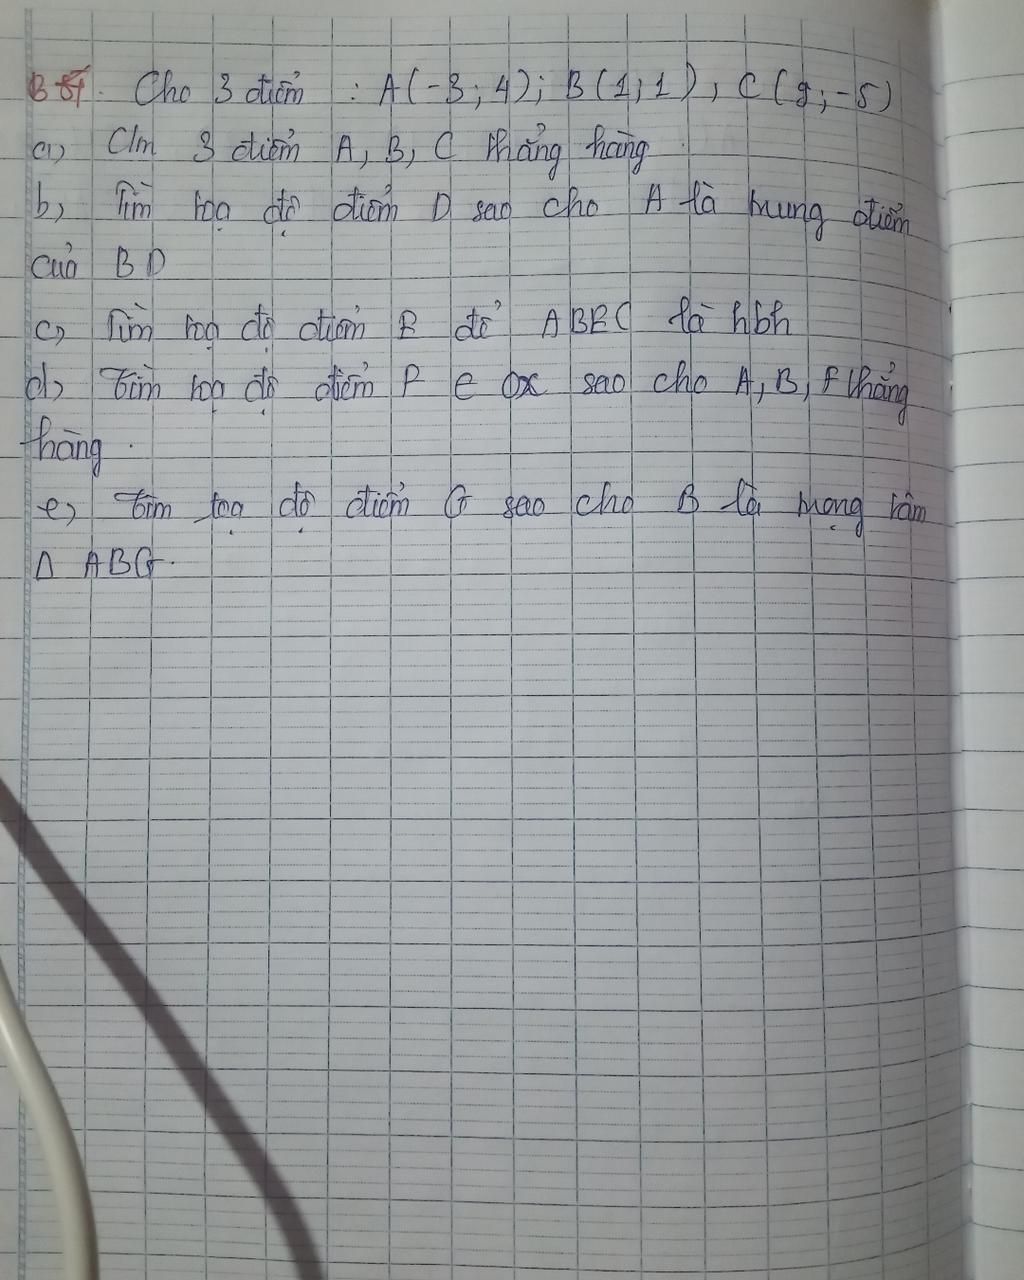 B Cho 3 điểm : A(-3; 4); B(1; 1), C(9; -5)
a) C/m 3 điểm A, B, C thẳng hàng
b, Tìm toạ độ điểm D sao cho A là trung điểm
của BD
c, Tìm toạ độ điểm E để ABEC là hbh
d, Tìm toạ độ điểm F ∈ Ox sao cho A, B, F thẳng
hàng.
e, Tìm toạ độ điểm G sao cho B là trọng tâm
Δ ABG.